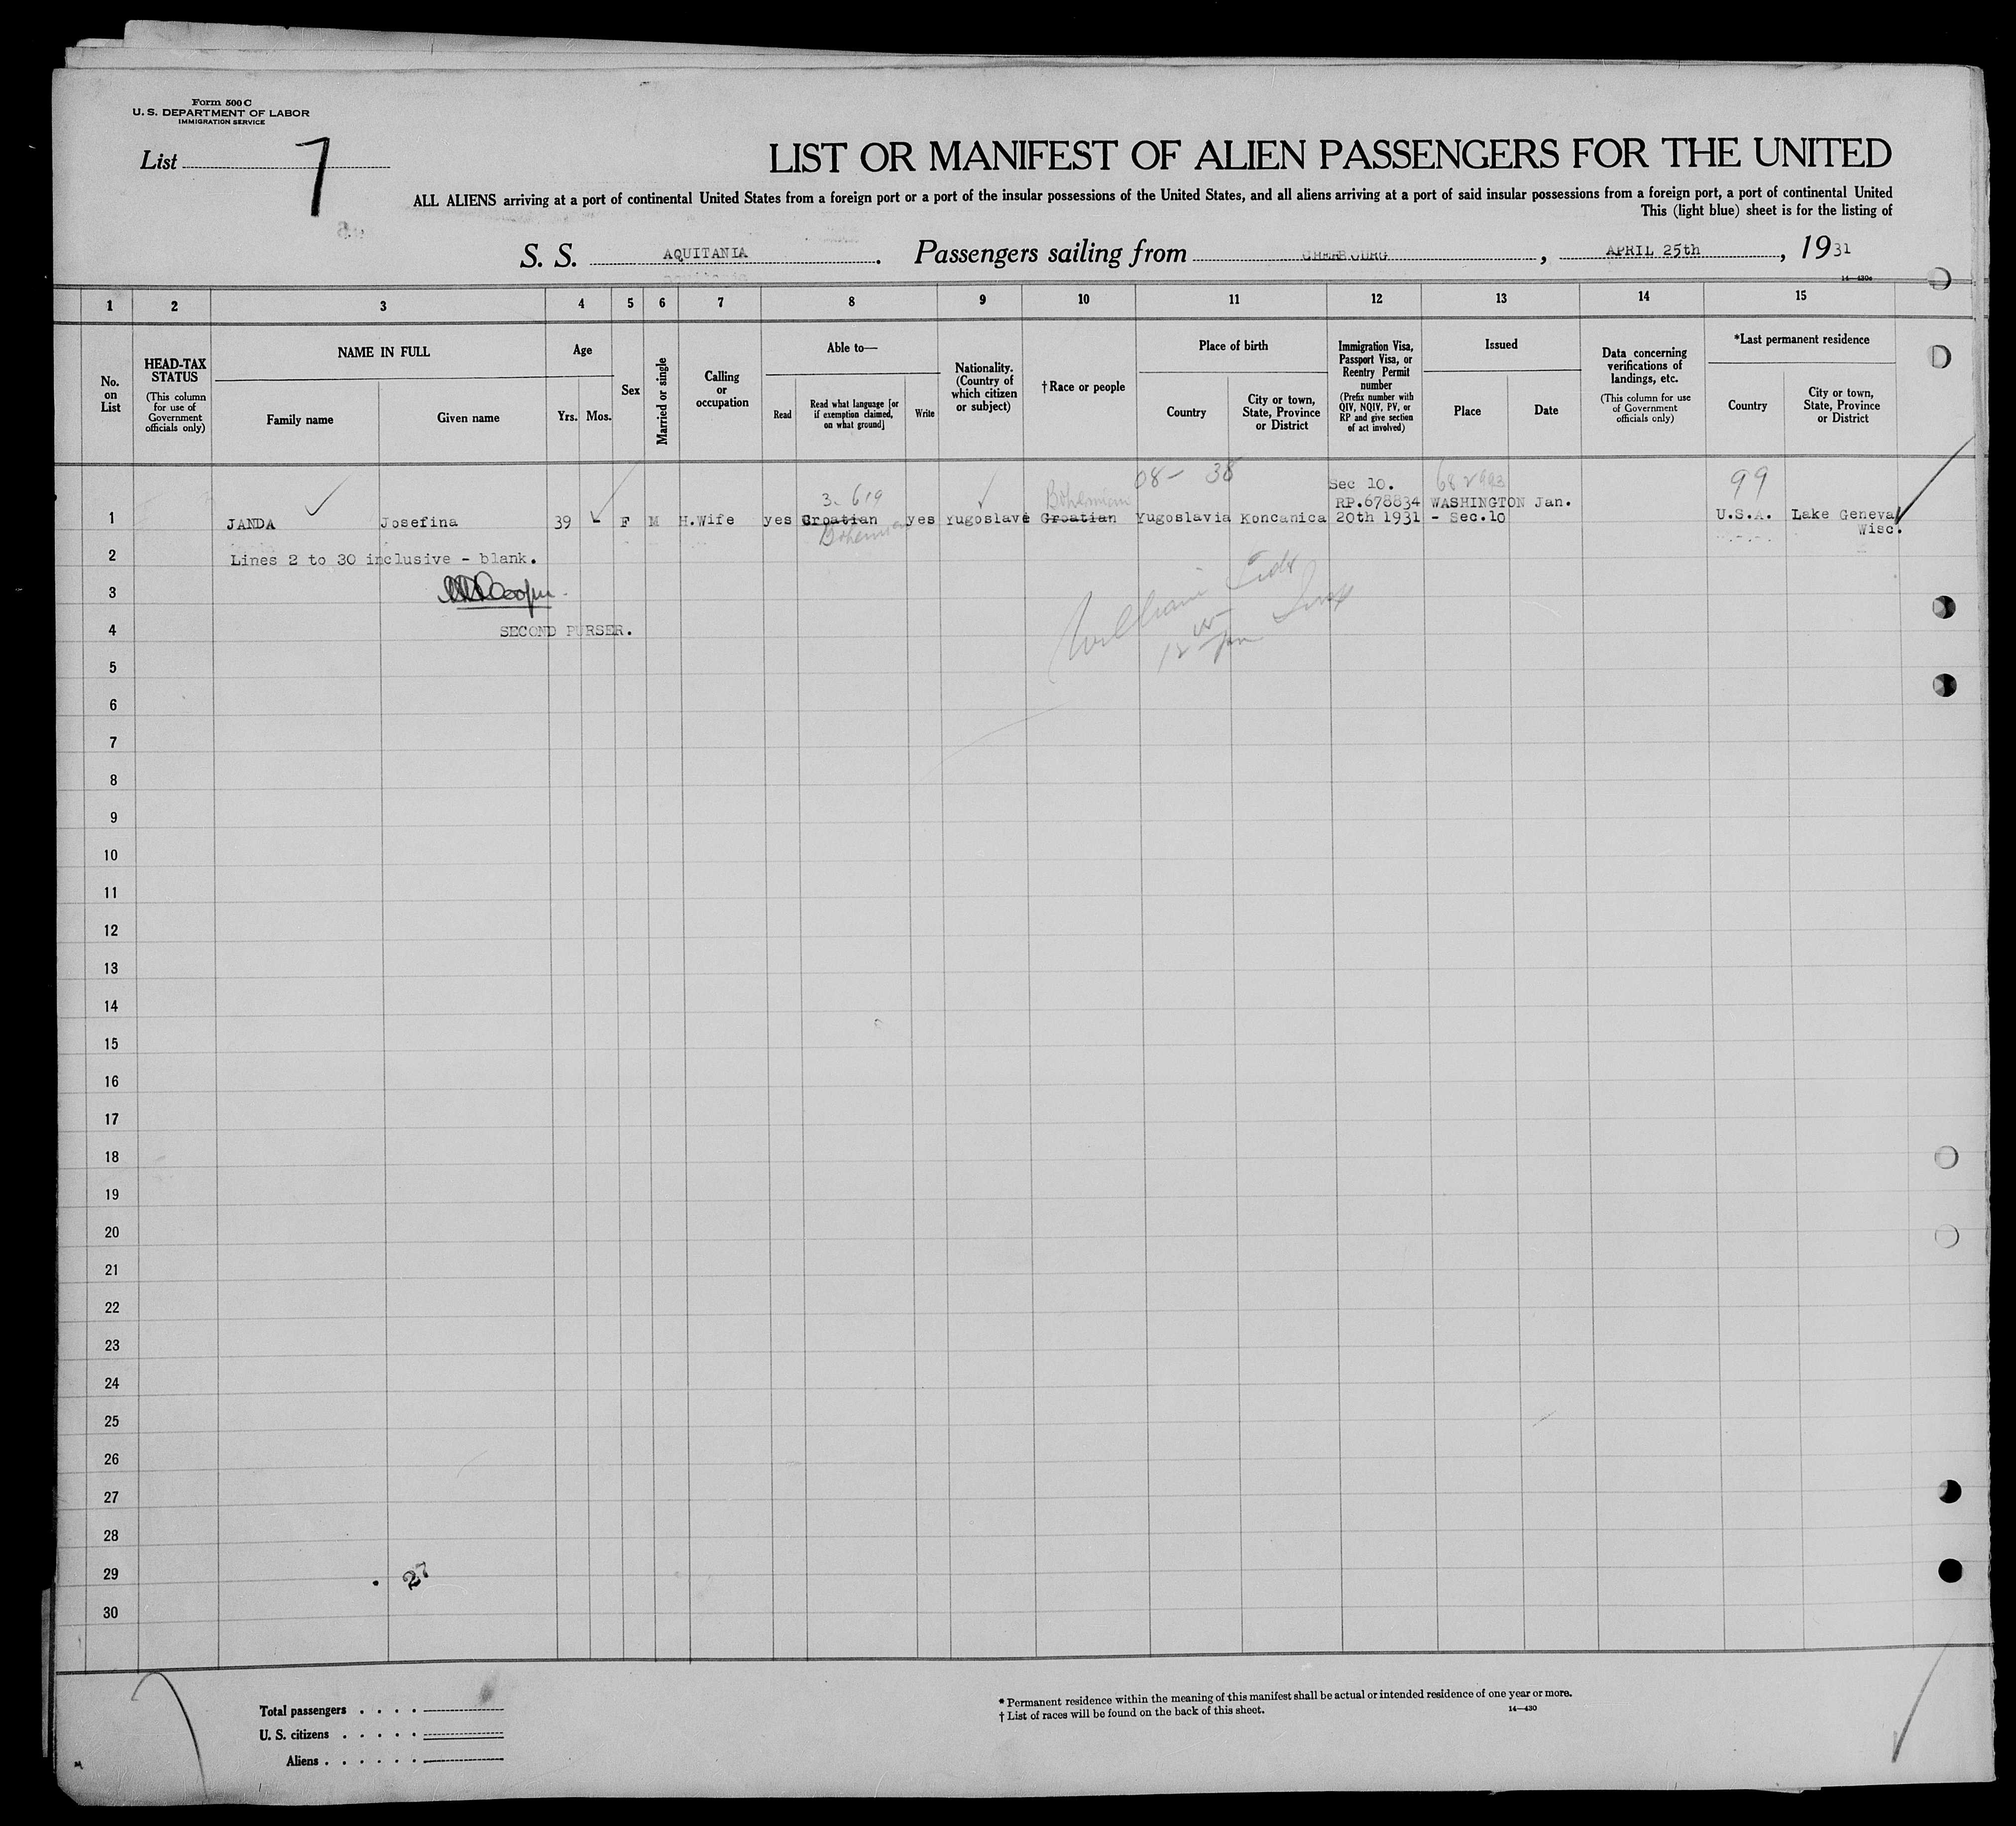 Form 500 C
U. S. DEPARTMENT OF LABOR
IMMIGRATION SERVICE
List 7
LIST OR MANIFEST OF ALIEN PASSENGERS FOR THE UNITED
ALL ALIENS arriving at a port of continental United States from a foreign port or a port of the insular possessions of the United States, and all aliens arriving at a port of said insular possessions from a foreign port, a port of continental United
This (light blue) sheet is for the listing of
S. S. AQUITANIA. Passengers sailing from CHERBOURG, APRIL 25th, 1931
14—430c
1 2 3 4 5 6 7 8 9 10 11 12 13 14 15
No. on List
HEAD-TAX STATUS
(This column for use of Government officials only)
NAME IN FULL
Family name
Given name
Age
Yrs.
Mos.
Sex
Married or single
Calling or occupation
Able to—
Read
Read what language [or if exemption claimed, on what ground]
Write
Nationality. (Country of which citizen or subject)
† Race or people
Place of birth
Country
City or town, State, Province or District
Immigration Visa, Passport Visa, or Reentry Permit number
(Prefix number with QIV, NQIV, PV, or RP and give section of act involved)
Issued
Place
Date
Data concerning verifications of landings, etc.
(This column for use of Government officials only)
*Last permanent residence
Country
City or town, State, Province or District
08- 38
Sec 10.
682993
99
3-619
Bohemian
RP.678834 WASHINGTON Jan.
1 JANDA Josefina 39 F M H.Wife yes Croatian yes Yugoslave Croatian Yugoslavia Koncanica 20th 1931 - Sec.10 U.S.A. Lake Geneva
Bohemian
Wisc.
2 Lines 2 to 30 inclusive - blank.
3
4 SECOND PURSER.
5
6
7
8
9
10
11
12
13
14
15
16
17
18
19
20
21
22
23
24
25
26
27
28
29 27
30
Total passengers
U. S. citizens
Aliens
* Permanent residence within the meaning of this manifest shall be actual or intended residence of one year or more.
† List of races will be found on the back of this sheet.
14—430